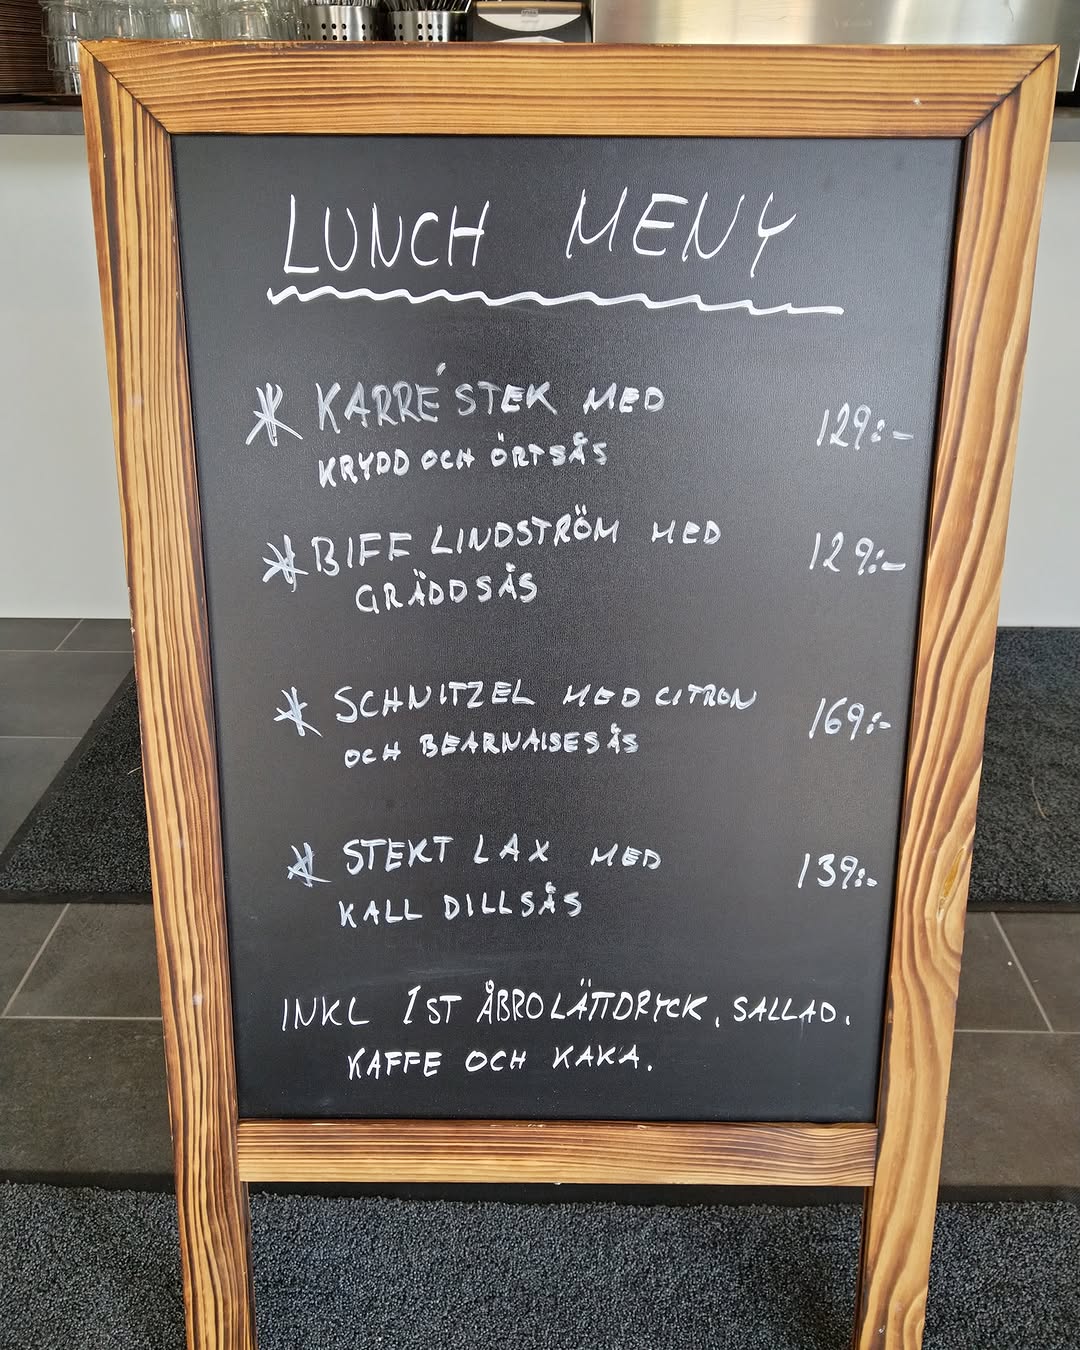 LUNCH MENY
* KARRÉSTEK MED 129:-
KRYDD OCH ÖRTSÅS
* BIFF LINDSTRÖM MED 129:-
GRÄDDSÅS
* SCHNITZEL MED CITRON 169:-
OCH BEARNAISESÅS
* STEKT LAX MED 139:-
KALL DILLSÅS
INKL 1ST ÅBRO LÄTTDRYCK, SALLAD,
KAFFE OCH KAKA.